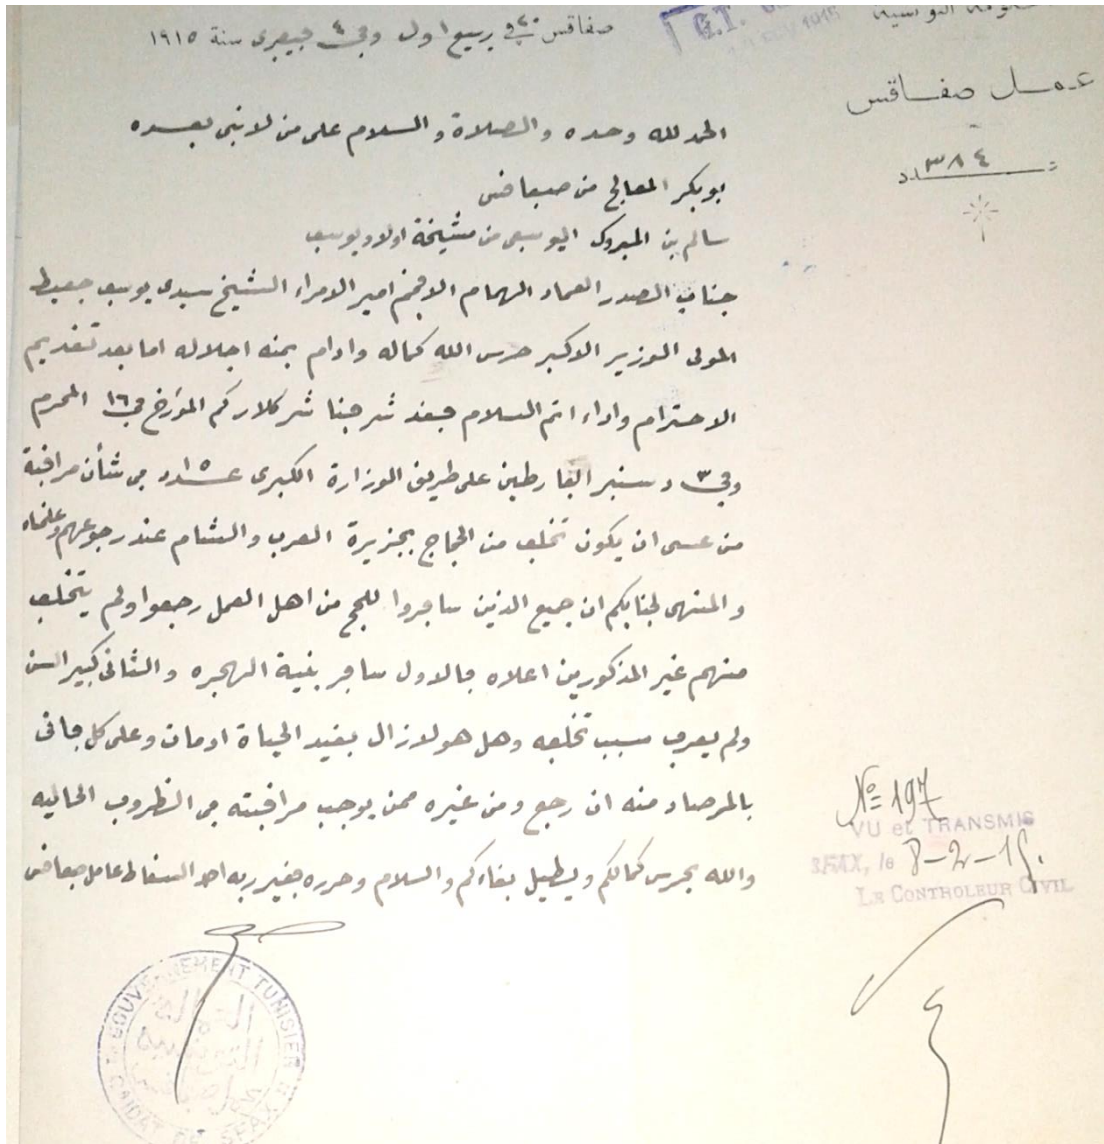 صفاقس في ٢٠ ربيع اول وفي ٤ فيفري سنة ١٩١٥
عمل صفاقس
عدد ٣٨٤
الحمد لله وحده والصلاة والسلام على من لا نبي بعده
بوبكر المعالج من صفاقس
سالم بن المبروك اليوسفي من مشيخة اولاد يوسف
جناب الصدر العماد الهمام الافخم امير الامراء الشيخ سيدي يوسف جعيط
المولى الوزير الاكبر حرس الله كماله وادام بمنه اجلاله اما بعد تقديم
الاحترام واداء اتم السلام فقد شرفنا شركلاركم المؤرخ في ١٦ المحرم
وفي ٣ دسنبر الفارطين على طريق الوزارة الكبرى عدد ١٥ في شأن مراقبة
من عسى ان يكون تخلف من الحجاج بجزيرة العرب والشام عند رجوعهم وعلمناه
والمنهى لجنابكم ان جميع الذين سافروا للحج من اهل العمل رجعوا ولم يتخلف
منهم غير المذكورين اعلاه فالاول سافر بنية الهجره والثاني كبير السن
ولم يعرف سبب تخلفه وهل هو لازال بقيد الحياة او مات وعلى كل فاني
بالمرصاد منه ان رجع ومن غيره ممن يوجب مراقبته في الظروف الحاليه
والله يحرس كمالكم ويطيل بقاءكم والسلام وحرره فقير ربه احمد السقاط عامل صفاقس
№ 197
VU et TRANSMIS
SFAX, le 8-2-15.
LE CONTROLEUR CIVIL
GOUVERNEMENT TUNISIEN
CAIDAT DE SFAX